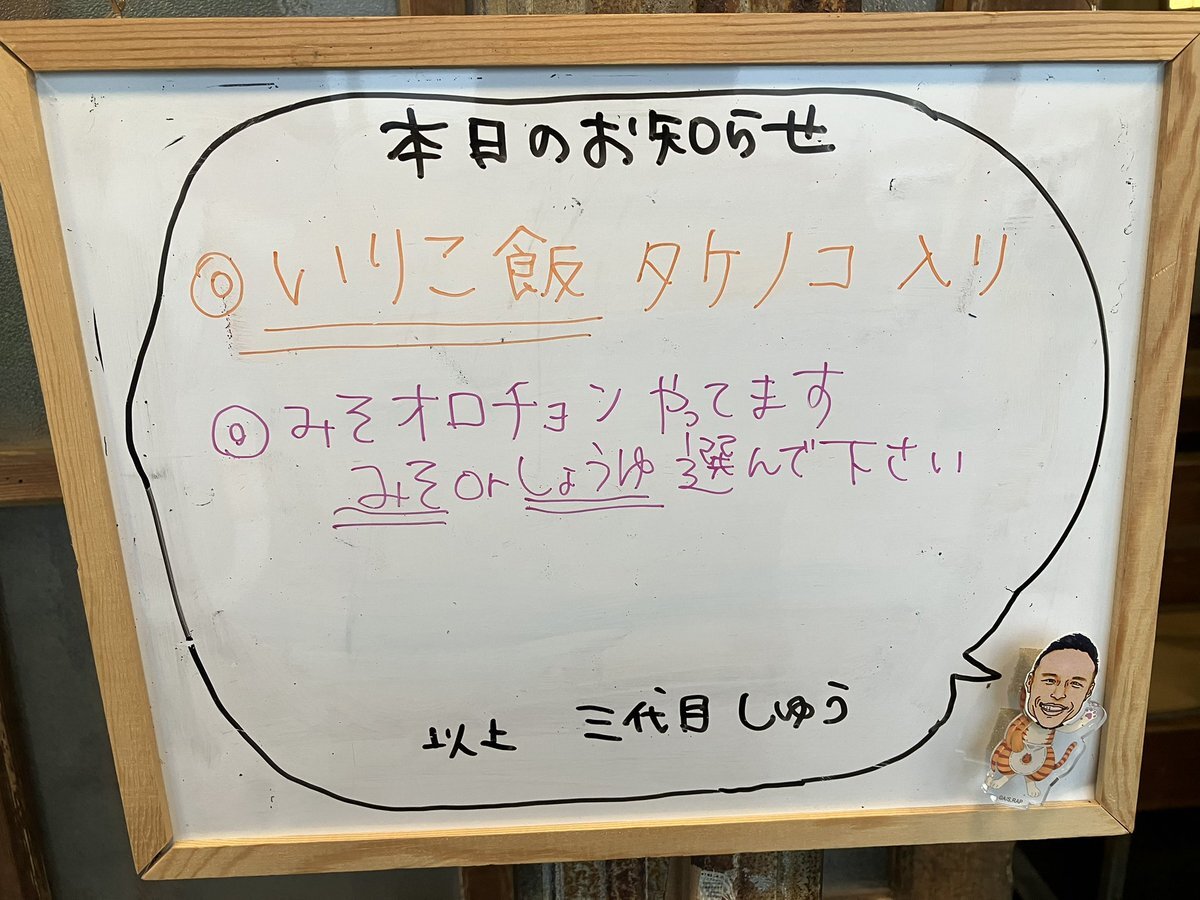 本日のお知らせ
◎ いりこ飯 タケノコ 入り
◎ みそオロチョン やってます
みそorしょうゆ 選んで下さい
以上 三代目 しゅう
©A/S,RAP